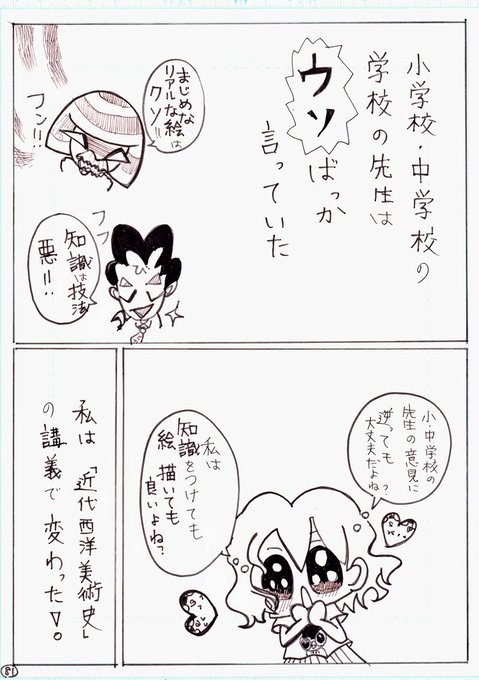 小学校・中学校の
学校の先生は
ウソ
ばっか
言っていた
まじめな
リアルな絵は
クソ!!
フン!!
フフ
知識は技法
悪!!
ひ
小・中学校の
先生の意見に
逆っても
大丈夫だよね?
私は
知識をつけても
絵描いても
良いよね?
私は「近代西洋美術史」
の講義で変わった▽。
81